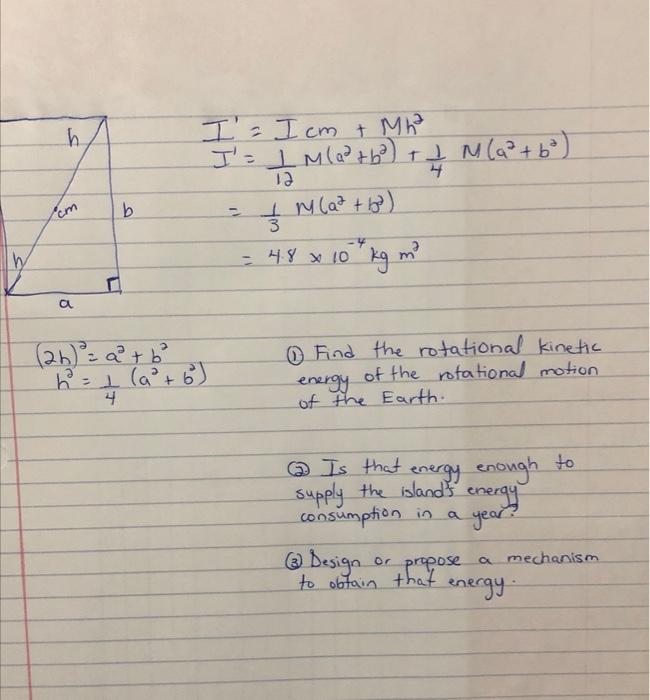 h
cm
b
h
a
I' = I cm + Mh²
I' = 1/12 M(a² + b²) + 1/4 M(a² + b²)
= 1/3 M(a² + b²)
= 4.8 × 10⁻⁴ kg m²
(2h)² = a² + b²
h² = 1/4 (a² + b²)
① Find the rotational kinetic
energy of the rotational motion
of the Earth.
② Is that energy enough to
supply the island's energy
consumption in a year?
③ Design or propose a mechanism
to obtain that energy.